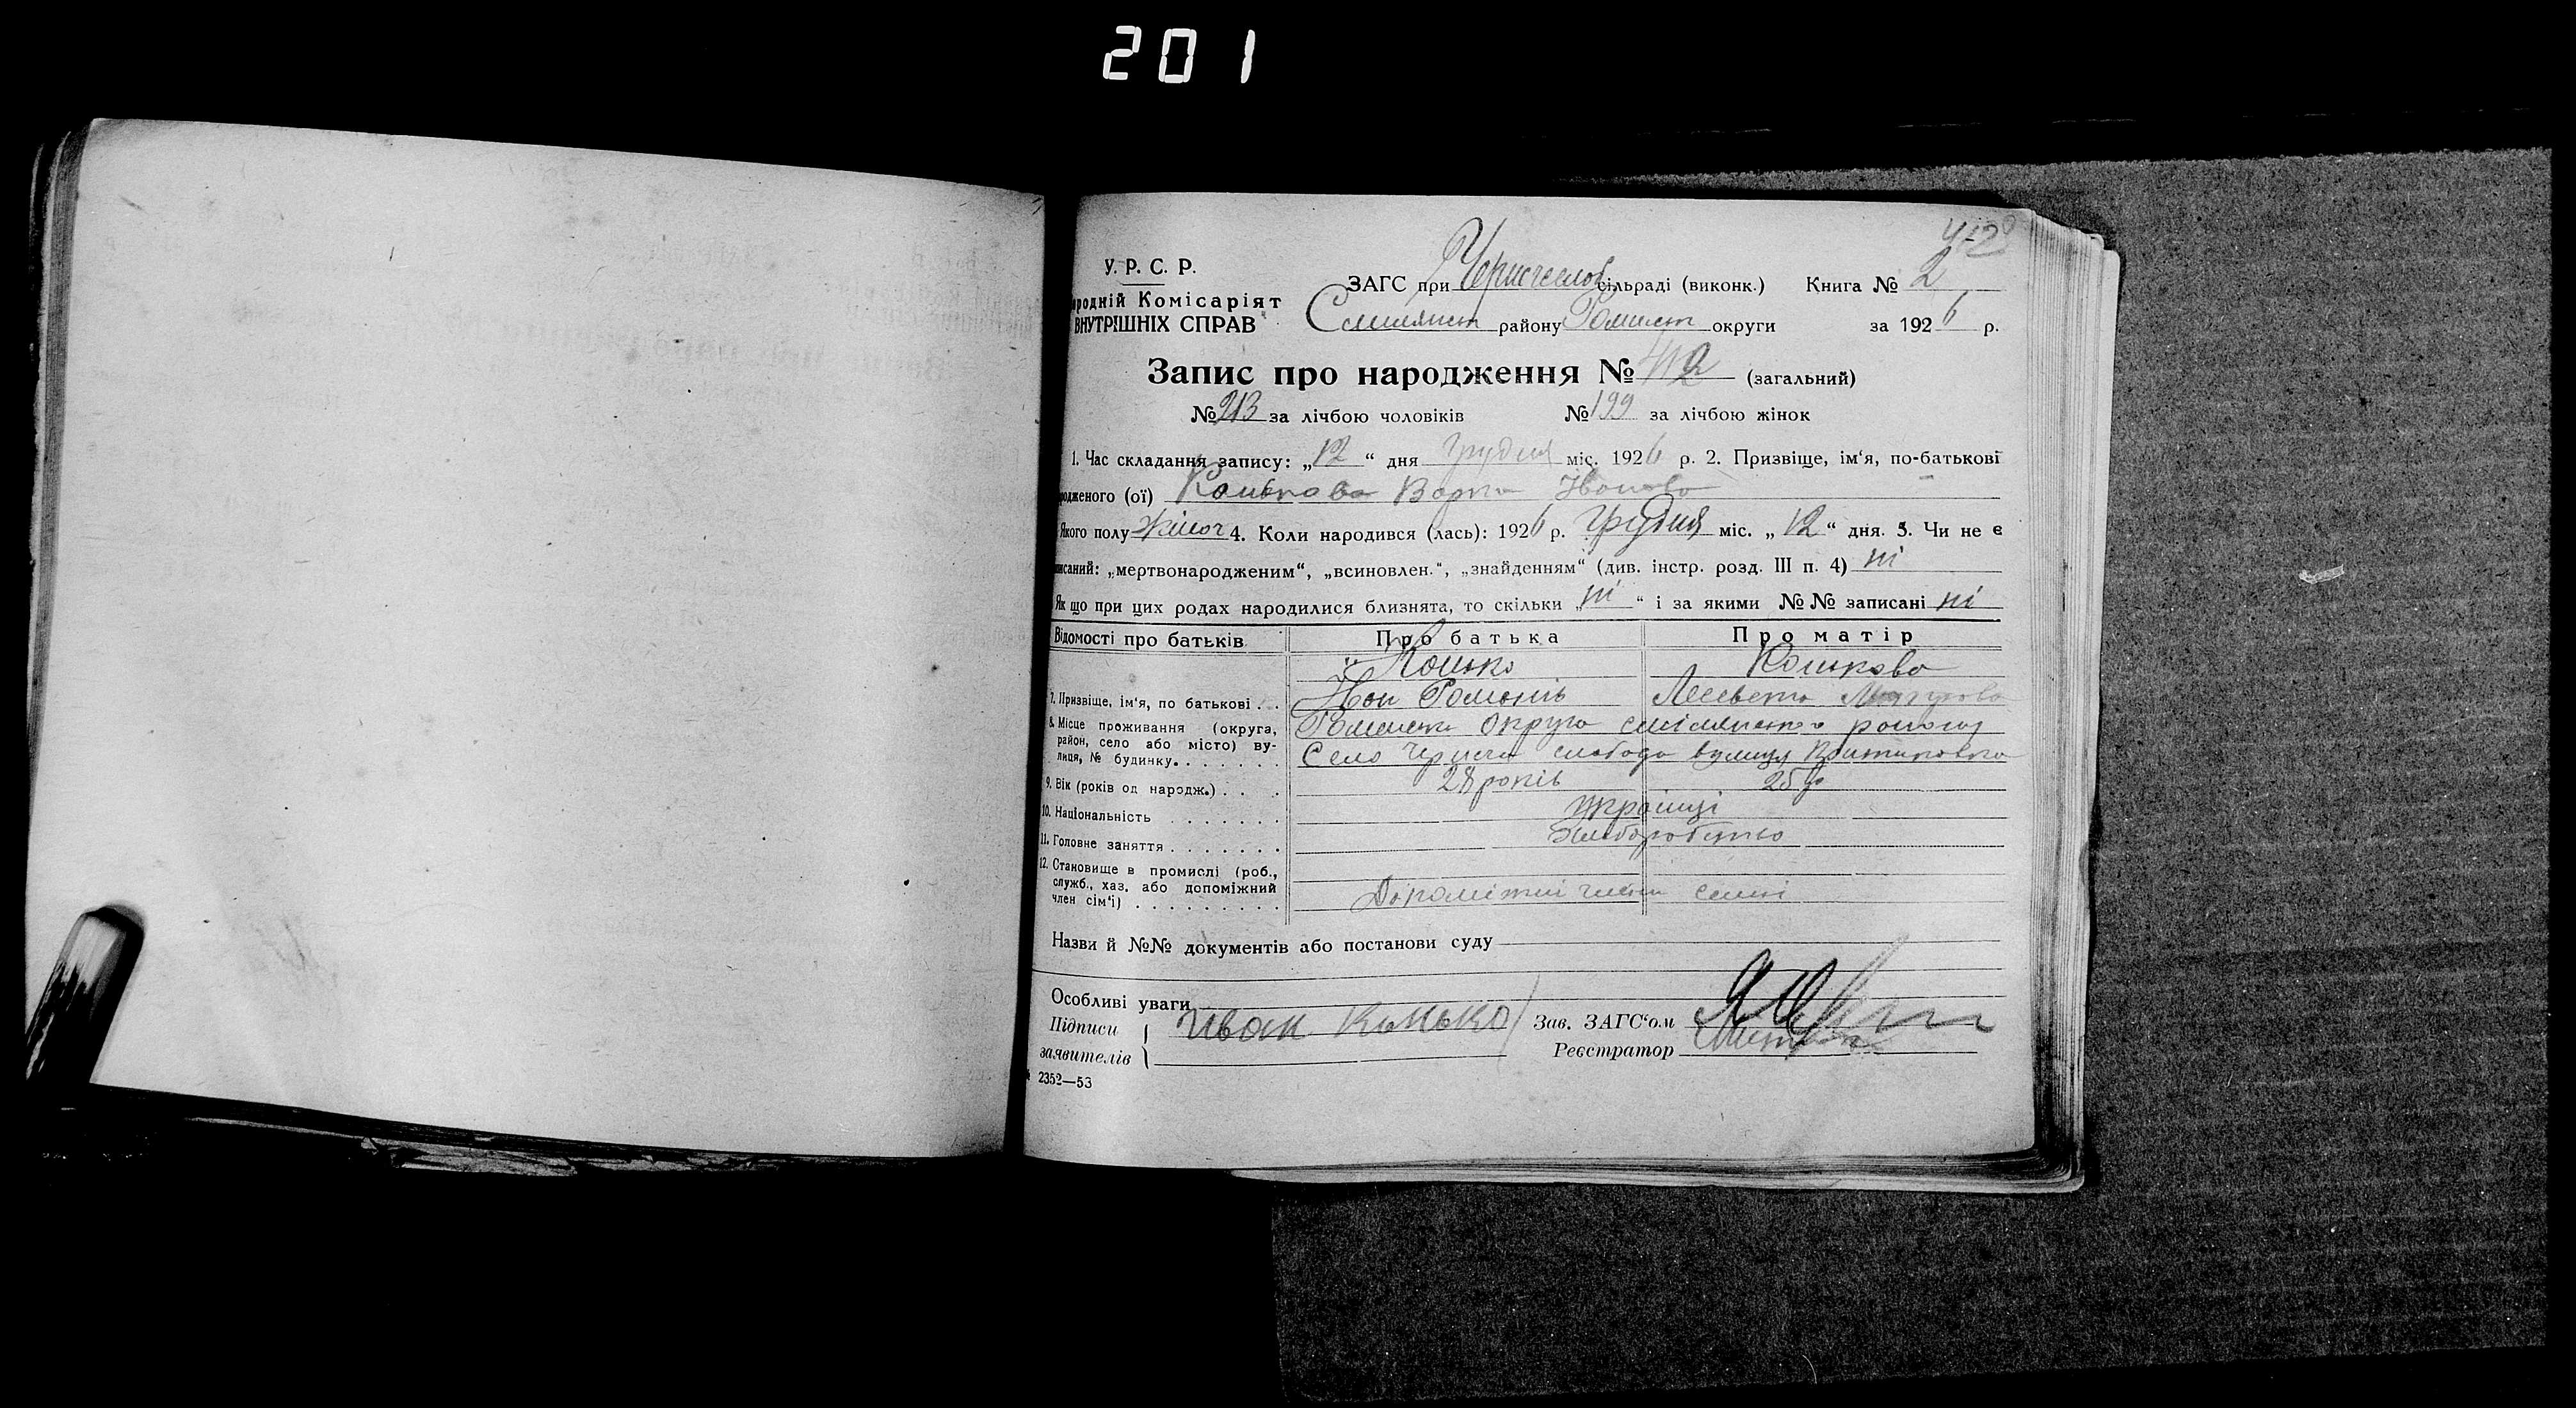 201
У. Р. С. Р.
ародній Комісаріят
ВНУТРІШНІХ СПРАВ
ЗАГС при Чернечеслоб. сільраді (виконк.) Книга № 2
Смілянськ району Роменськ округи за 1926 р.
Запис про народження № 412 (загальний)
№ 213 за лічбою чоловіків № 199 за лічбою жінок
1. Час складання запису: „12“ дня Грудня міс. 1926 р. 2. Призвіще, ім‘я, по-батькові
родженого (ої) Конькова Варка Іванова
Якого полу жіноч 4. Коли народився (лась): 1926 р. Грудня міс. „12“ дня. 5. Чи не є
писаний: „мертвонародженим“, „всиновлен.“, „знайденням“ (див. інстр. розд. III п. 4) ні
Як що при цих родах народилися близнята, то скільки „ні“ і за якими №№ записані ні
Відомості про батьків Про батька Про матір
Конько Конькова
7. Призвіще, ім‘я, по батькові . . Іван Романів
8. Місце проживання (округа, Роменська округа Смілянського району
район, село або місто) ву-
лиця, № будинку. . . . . . . Село Чернеча слобода вулиця
9. Вік (років од народж.) . . . 28 років 25 р
10. Національність . . . . . . . Українці
11. Головне заняття . . . . . . . Хліборобство
12. Становище в промислі (роб.,
служб., хаз. або допоміжний Допоміжні члени семї
член сім‘ї) . . . . . . . . .
Назви й №№ документів або постанови суду
Особливі уваги
Підписи Иван Конько Зав. ЗАГС‘ом
заявителів Реєстратор
2352—53